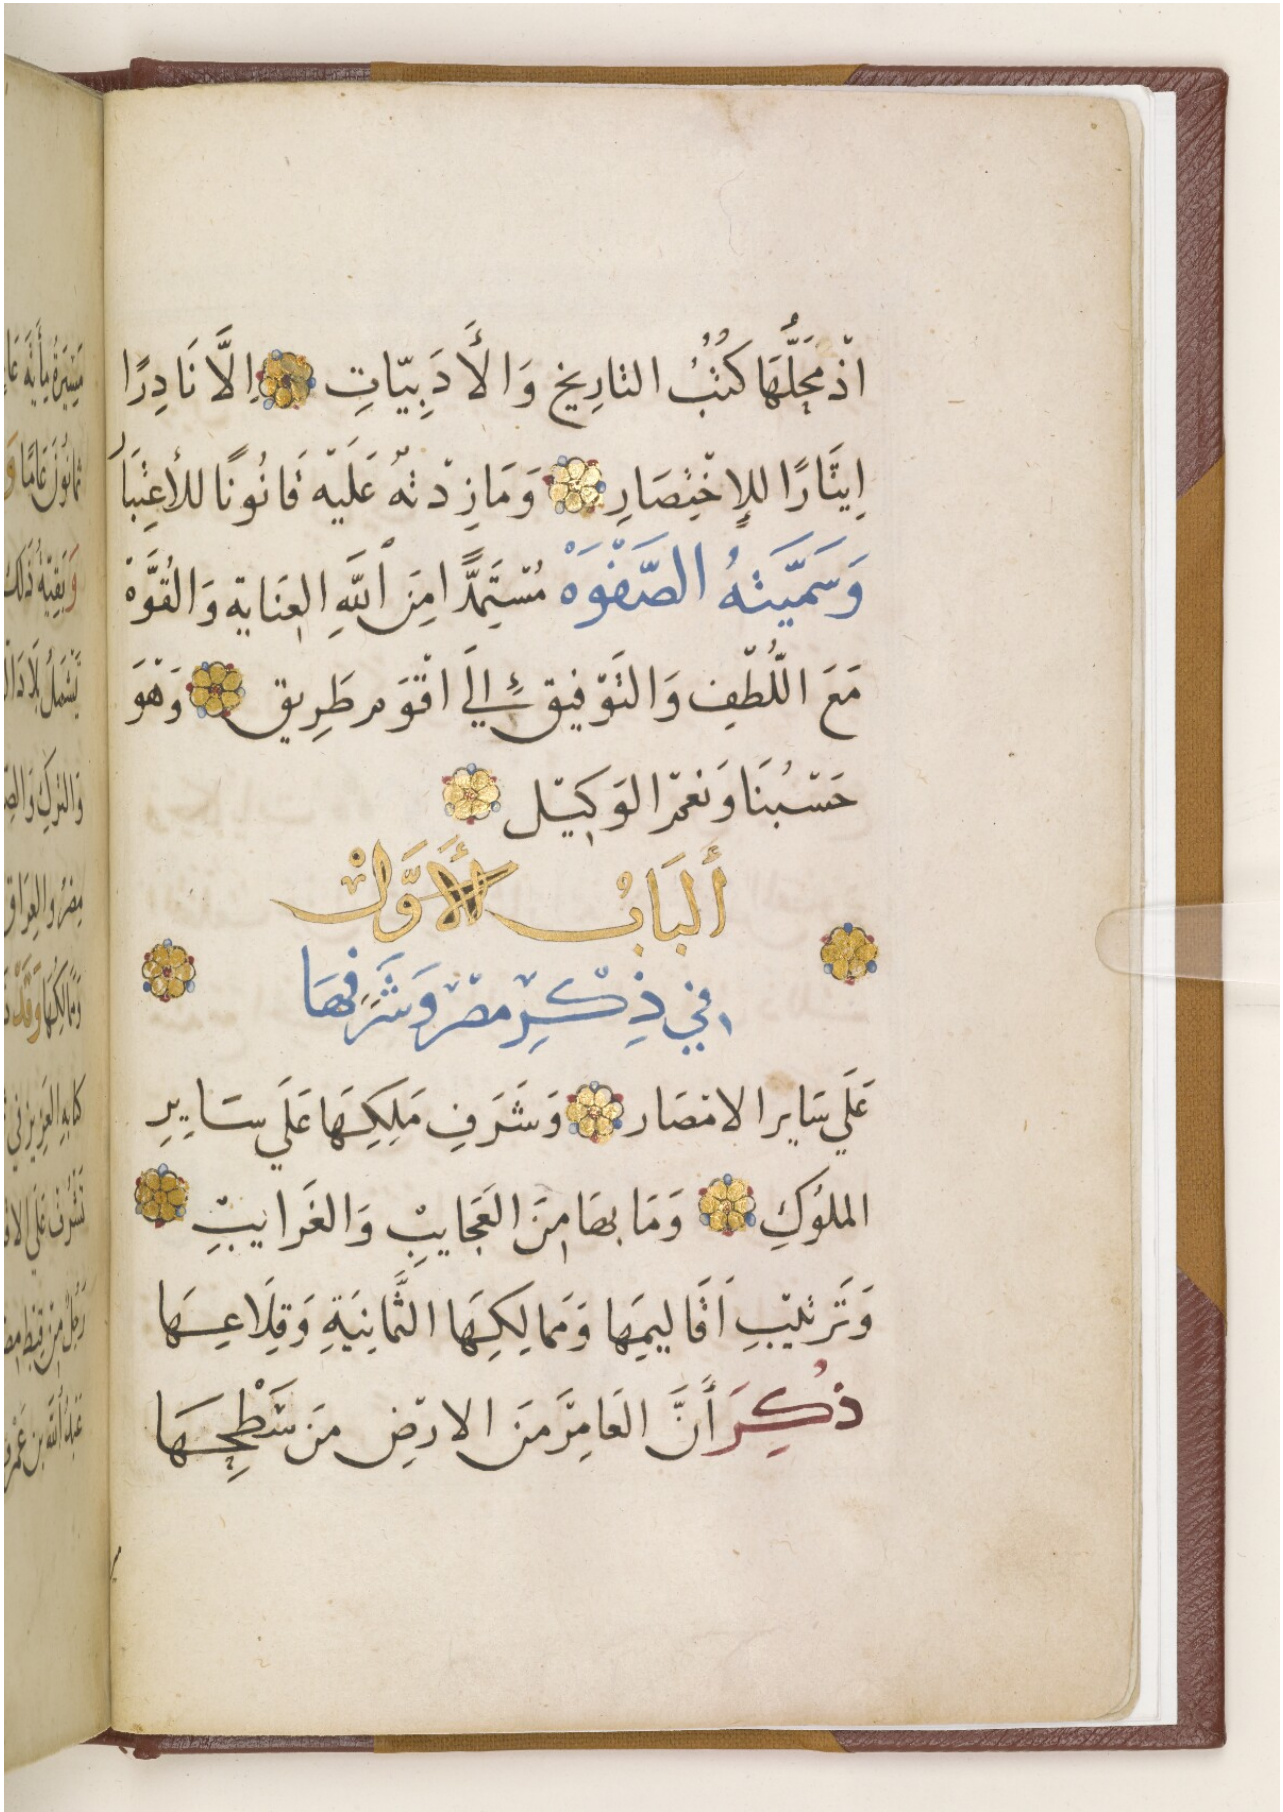 اذْ مَحَلُّهَا كُتُبُ التارِيخ وَالأَدَبِيّاتِ اِلَّا نَادِرًا
اِيثَارًا للإخْتِصَارِ وَمَازِدْتهُ عَلَيْه قَانُونًا للأعِتبَار
وَسَمَّيَتهُ الصَّفْوَهْ مُسْتِمَدًّا مِنَ اللَّهِ العِنَاية وَالقُوَّهْ
مَعَ اللُّطْفِ وَالتَوْفيق إلَي اقْوَم طَرِيق وَهْوَ
حَسْبُنَا وَنعْمَ الوَكِيْل
أَلبَابُ الأَوَّلْ
في ذِكْرِ مصْر وَشَرَفهَا
عَلَي سَاير الامْصَار وَشَرَفِ مَلِكِهَا عَلَي سَايِرِ
الملُوْكِ وَمَا بهَا مِنَ العَجَايبِ وَالغَرايبِ
وَتَرتيْبِ اَقَاليمِهَا وَمَمالِكِهَا الثَّمانِيَةِ وَقِلَاعِهَا
ذُكِرَ أَنَّ العَامِرَ مِنَ الارْضِ مِنْ سَطْحِهَا